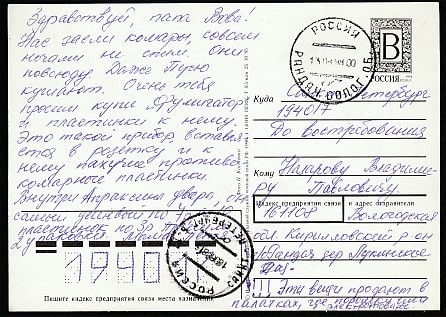 Здравствуй, папа Вова!
Нас заели комары, совсем
ночами не спим. Они
повсюду. Даже Пузю
кушают. Очень тебя
просим купи Фумигатор
и пластинки к нему.
Это такой прибор, вставля
ется в розетку и к
нему пахучие противо-
комарные пластинки.
Внутри Апраксина двора, он
самый дешёвый по
пластинки по
2 упаковки
РОССИЯ
В
РОССИЯ
Куда
Санкт-Петербург
194017
До востребования
Кому
Макарову Владими-
ру Павловичу.
Индекс предприятия связи и адрес отправителя
161108
Вологодская
обл. Кирилловский р-он
дер Лукинское
!!! Эти вещи продают в
палатках, где порошки или
электротовары
САНКТ-ПЕТЕРБУРГ
РОССИЯ
194017
Пишите индекс предприятия связи места назначения